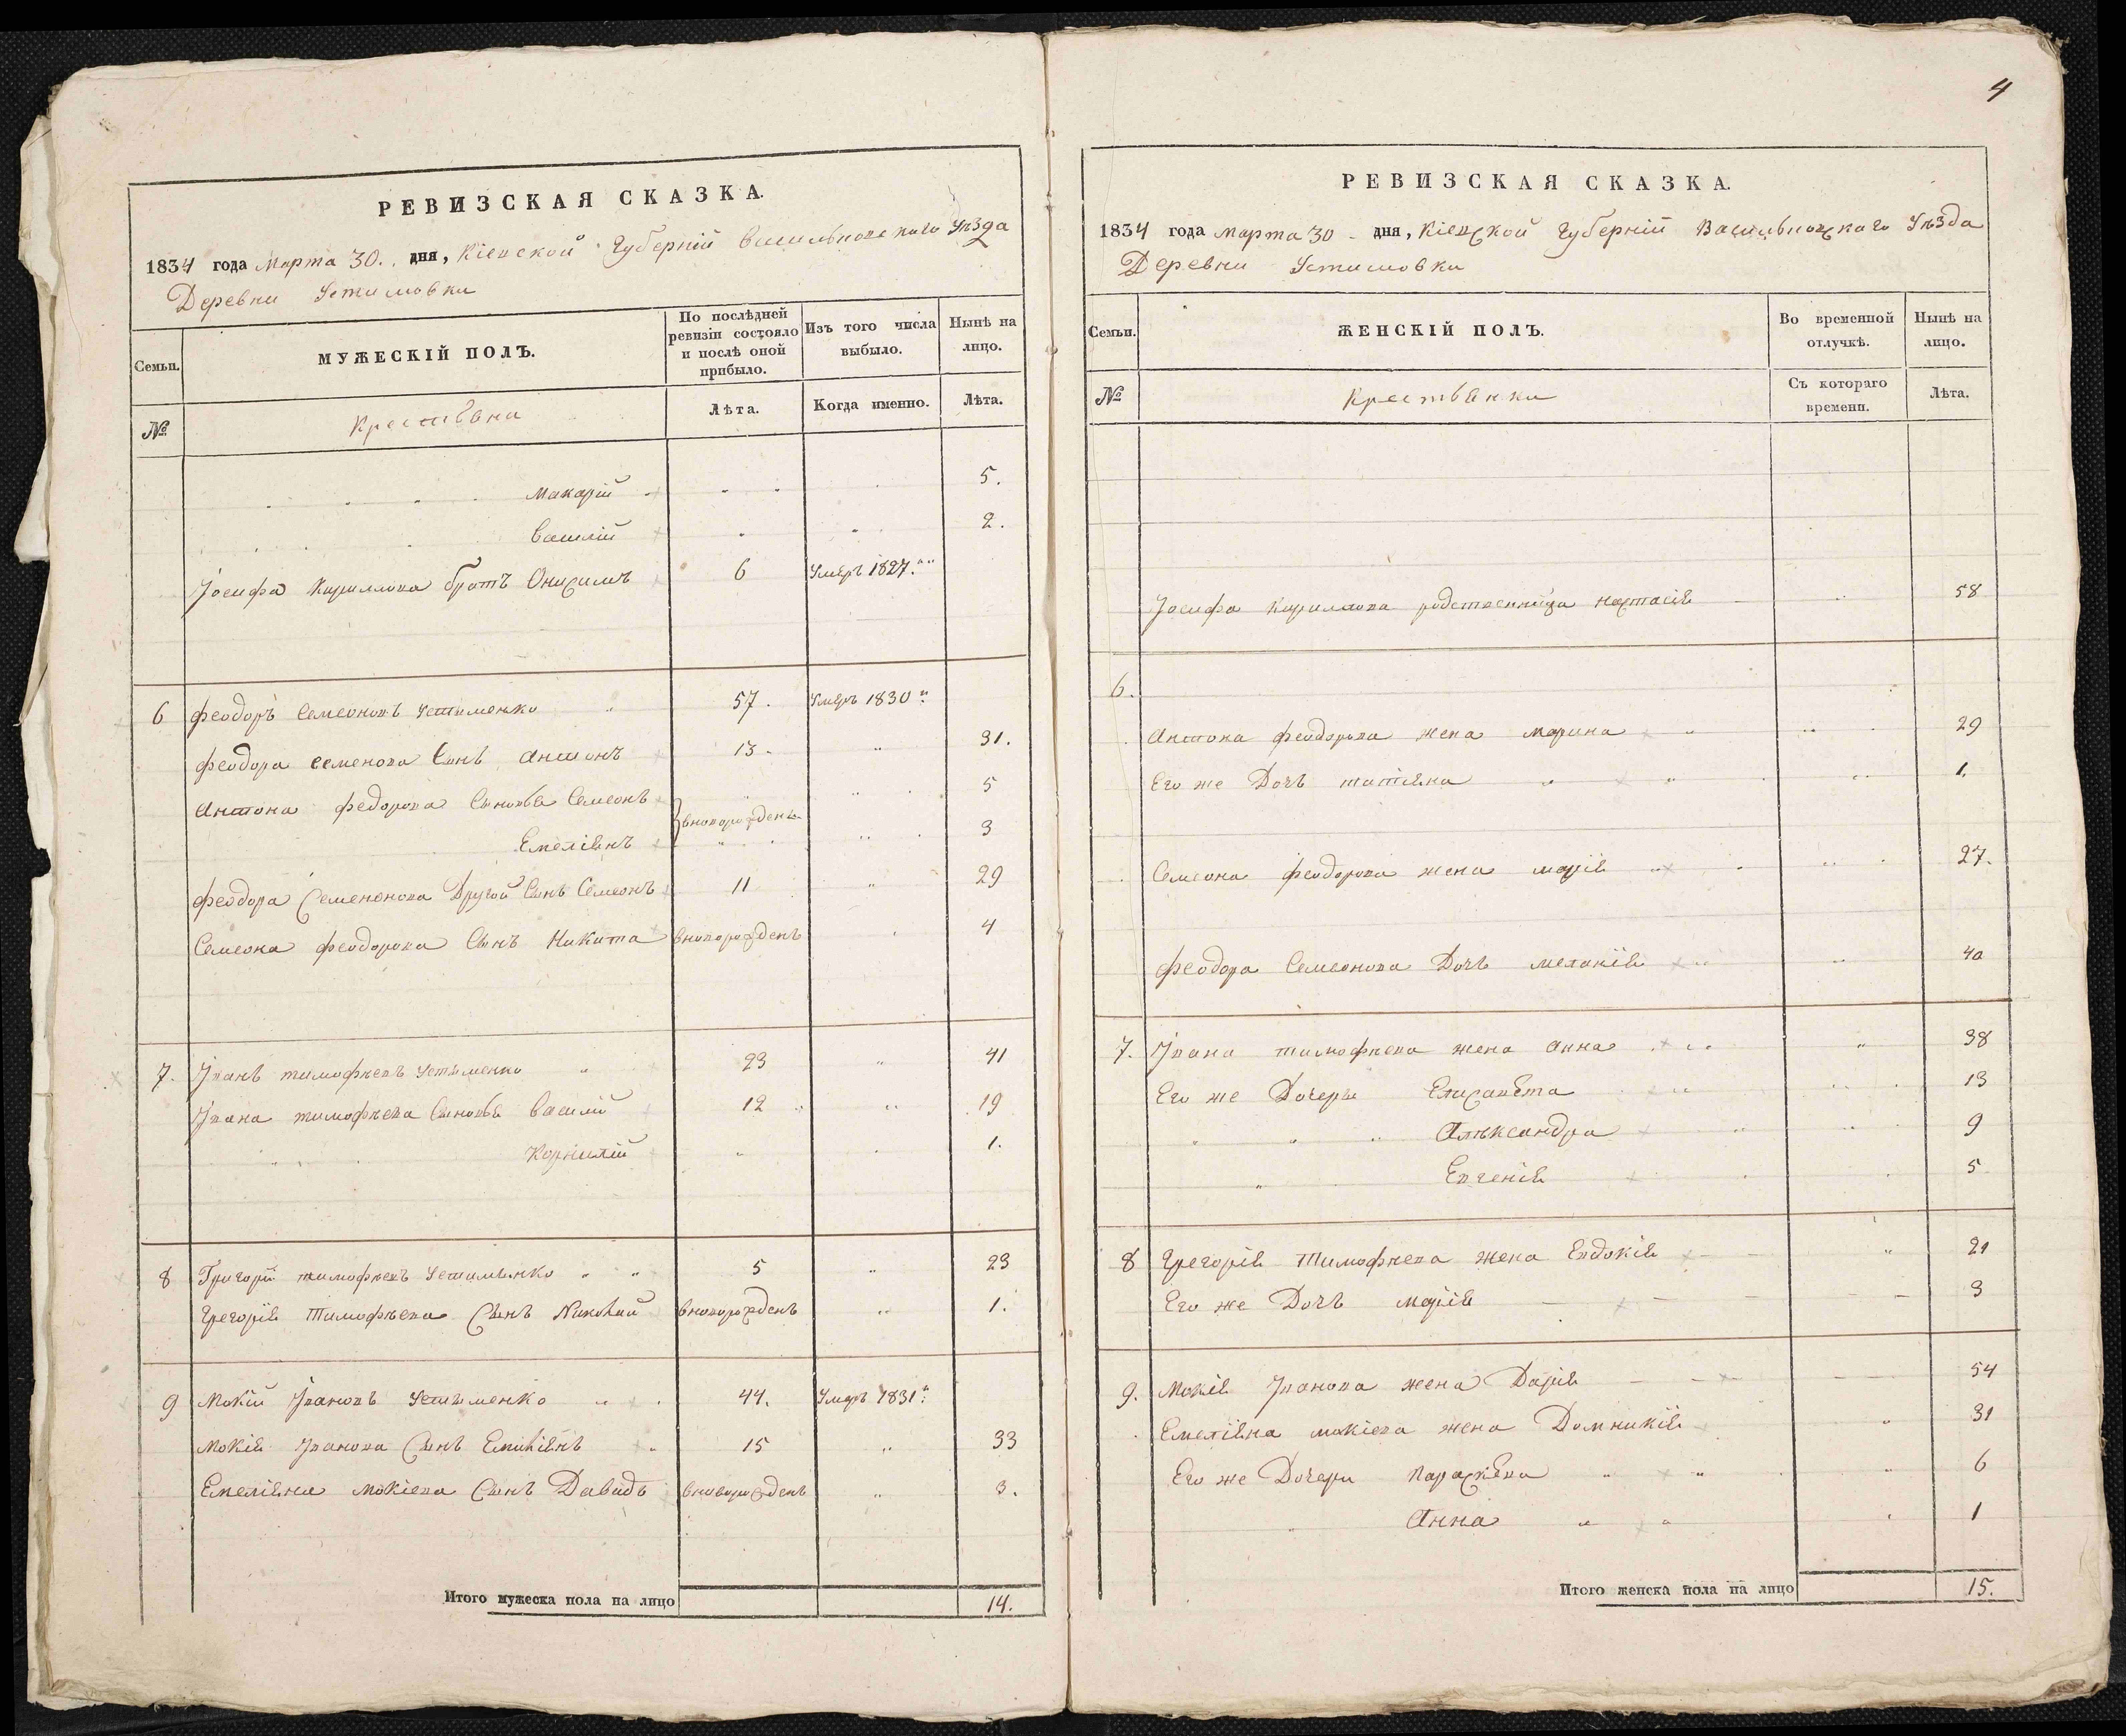 4
РЕВИЗСКАЯ СКАЗКА.
1834 года Марта 30. дня, Кіевской Губерній Васильковскаго Уѣзда
Деревни Устимовки
Семьи.
МУЖЕСКІЙ ПОЛЪ.
По послѣдней ревизіи состояло и послѣ оной прибыло.
Изъ того числа выбыло.
Нынѣ на лицо.
№
Крестьяне
Лѣта.
Когда именно.
Лѣта.
Макарій 5.
Василій 2.
Іосифа Кирилова братъ Онисимъ 6 Умеръ 1827.
6 Феодоръ Семеоновъ Устименко 57. Умеръ 1830
Феодора Семенова Сынъ Антонъ 13. 31.
Антона Федорова Сыновья Семеонъ 5
вноворожденъ
Емеліянъ 3
Феодора Семенонова Другой Сынъ Семеонъ 11 29
Семеона Феодорова Сынъ Никита вноворожденъ 4
7. Іванъ Тимофѣевъ Устименко 23 41
Івана Тимофѣева Сыновья Василій 12 19
Корнилій 1.
8 Григорій Тимофѣевъ Устименко 5 23
Грегорія Тимофѣева Сынъ Николай вноворожденъ 1.
9 Мокій Івановъ Устименко 44. Умеръ 1831
Мокія Іванова Сынъ Емиліянъ 15 33
Емеліяна Мокіева Сынъ Давидъ вноворожденъ 3.
Итого мужеска пола на лицо 14.
РЕВИЗСКАЯ СКАЗКА.
1834 года Марта 30 дня, Кіевской Губерній Васильковскаго Уѣзда
Деревни Устимовки
Семьи.
ЖЕНСКІЙ ПОЛЪ.
Во временной отлучкѣ.
Нынѣ на лицо.
№
Крестьянки
Съ котораго времени.
Лѣта.
Іосифа Кирилова родственница Настасія 58
6.
Антона Феодорова жена Марина 29
Его же Дочь Татіяна 1.
Семеона Феодорова жена Марія 27.
Феодора Семеонова Дочь Меланія 40
7. Івана Тимофѣева жена Анна 38
Его же Дочери Елисавета 13
Алѣксандра 9
Евгенія 5
8 Грегорія Тимофѣева жена Евдокія 21
Его же Дочь Марія 3
9. Мокія Іванова жена Дарія 54
Емеліяна Мокіева жена Домникія 31
Его же Дочери Параскева 6
Анна 1
Итого женска пола на лицо 15.